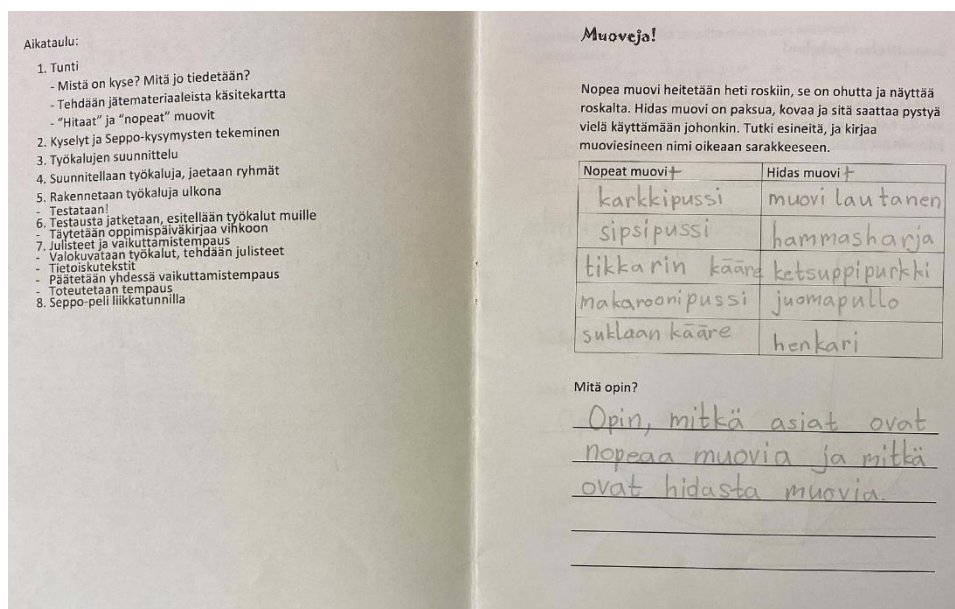 Aikataulu:
1. Tunti
- Mistä on kyse? Mitä jo tiedetään?
- Tehdään jätemateriaaleista käsitekartta
- "Hitaat" ja "nopeat" muovit
2. Kyselyt ja Seppo-kysymysten tekeminen
3. Työkalujen suunnittelu
4. Suunnitellaan työkaluja, jaetaan ryhmät
5. Rakennetaan työkaluja ulkona
- Testataan!
6. Testausta jatketaan, esitellään työkalut muille
- Täytetään oppimispäiväkirjaa vihkoon
7. Julisteet ja vaikuttamistempaus
- Valokuvataan työkalut, tehdään julisteet
- Tietoiskutekstit
- Päätetään yhdessä vaikuttamistempaus
- Toteutetaan tempaus
8. Seppo-peli liikkatunnilla
Muoveja!
Nopea muovi heitetään heti roskiin, se on ohutta ja näyttää
roskalta. Hidas muovi on paksua, kovaa ja sitä saattaa pystyä
vielä käyttämään johonkin. Tutki esineitä, ja kirjaa
muoviesineen nimi oikeaan sarakkeeseen.
Nopeat muovit Hidas muovi t
karkkipussi muovi lautanen
sipsipussi hammasharja
tikkarin kääre ketsuppipurkki
makaroonipussi juomapullo
suklaan kääre henkari
Mitä opin?
Opin, mitkä asiat ovat
nopeaa muovia ja mitkä
ovat hidasta muovia.